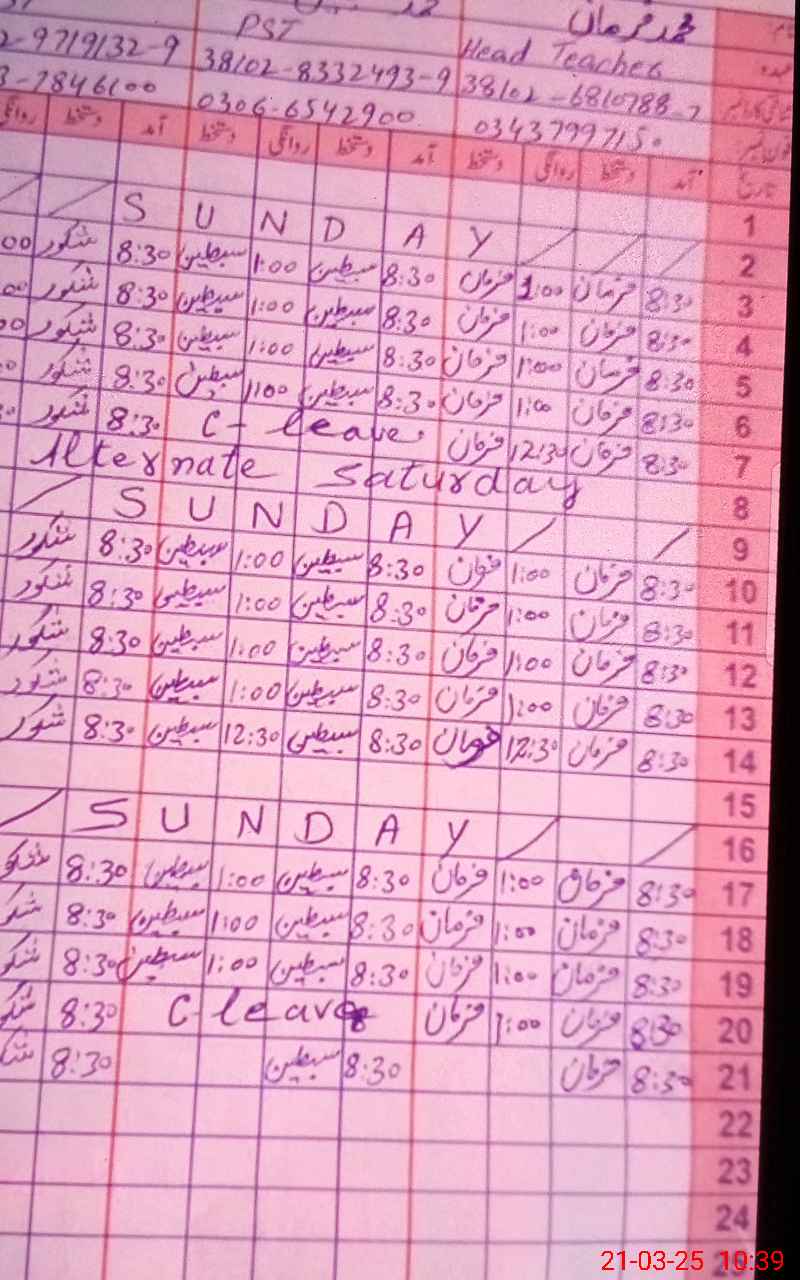 محمد فرمان
Head Teacher PST
38102-6810788-7 38102-8332493-9 2-9719132-9
03437997150 0306-6542900 3-7846100
تاریخ آمد دستخط روانگی دستخط آمد دستخط روانگی دستخط آمد دستخط روانگی
1
2 SUNDAY
3 8:30 فرمان 1:00 فرمان 8:30 سبطین 1:00 سبطین 8:30 شکور 00
4 8:30 فرمان 1:00 فرمان 8:30 سبطین 1:00 سبطین 8:30 شکور 00
5 8:30 فرمان 1:00 فرمان 8:30 سبطین 1:00 سبطین 8:30 شکور 00
6 8:30 فرمان 1:00 فرمان 8:30 سبطین 1:00 سبطین 8:30 شکور
7 8:30 فرمان 12:30 فرمان C-leave 8:30 شکور
8 Alternate Saturday
9 SUNDAY
10 8:30 فرمان 1:00 فرمان 8:30 سبطین 1:00 سبطین 8:30 شکور
11 8:30 فرمان 1:00 فرمان 8:30 سبطین 1:00 سبطین 8:30 شکور
12 8:30 فرمان 1:00 فرمان 8:30 سبطین 1:00 سبطین 8:30 شکور
13 8:30 فرمان 1:00 فرمان 8:30 سبطین 1:00 سبطین 8:30 شکور
14 8:30 فرمان 12:30 فرمان 8:30 سبطین 12:30 سبطین 8:30 شکور
15
16 SUNDAY
17 8:30 فرمان 1:00 فرمان 8:30 سبطین 1:00 سبطین 8:30 شکو
18 8:30 فرمان 1:00 فرمان 8:30 سبطین 1:00 سبطین 8:30 شکو
19 8:30 فرمان 1:00 فرمان 8:30 سبطین 1:00 سبطین 8:30 شکو
20 8:30 فرمان 1:00 فرمان C-leave 8:30 شکو
21 8:30 فرمان 8:30 سبطین 8:30 شک
22
23
24
21-03-25 10:39